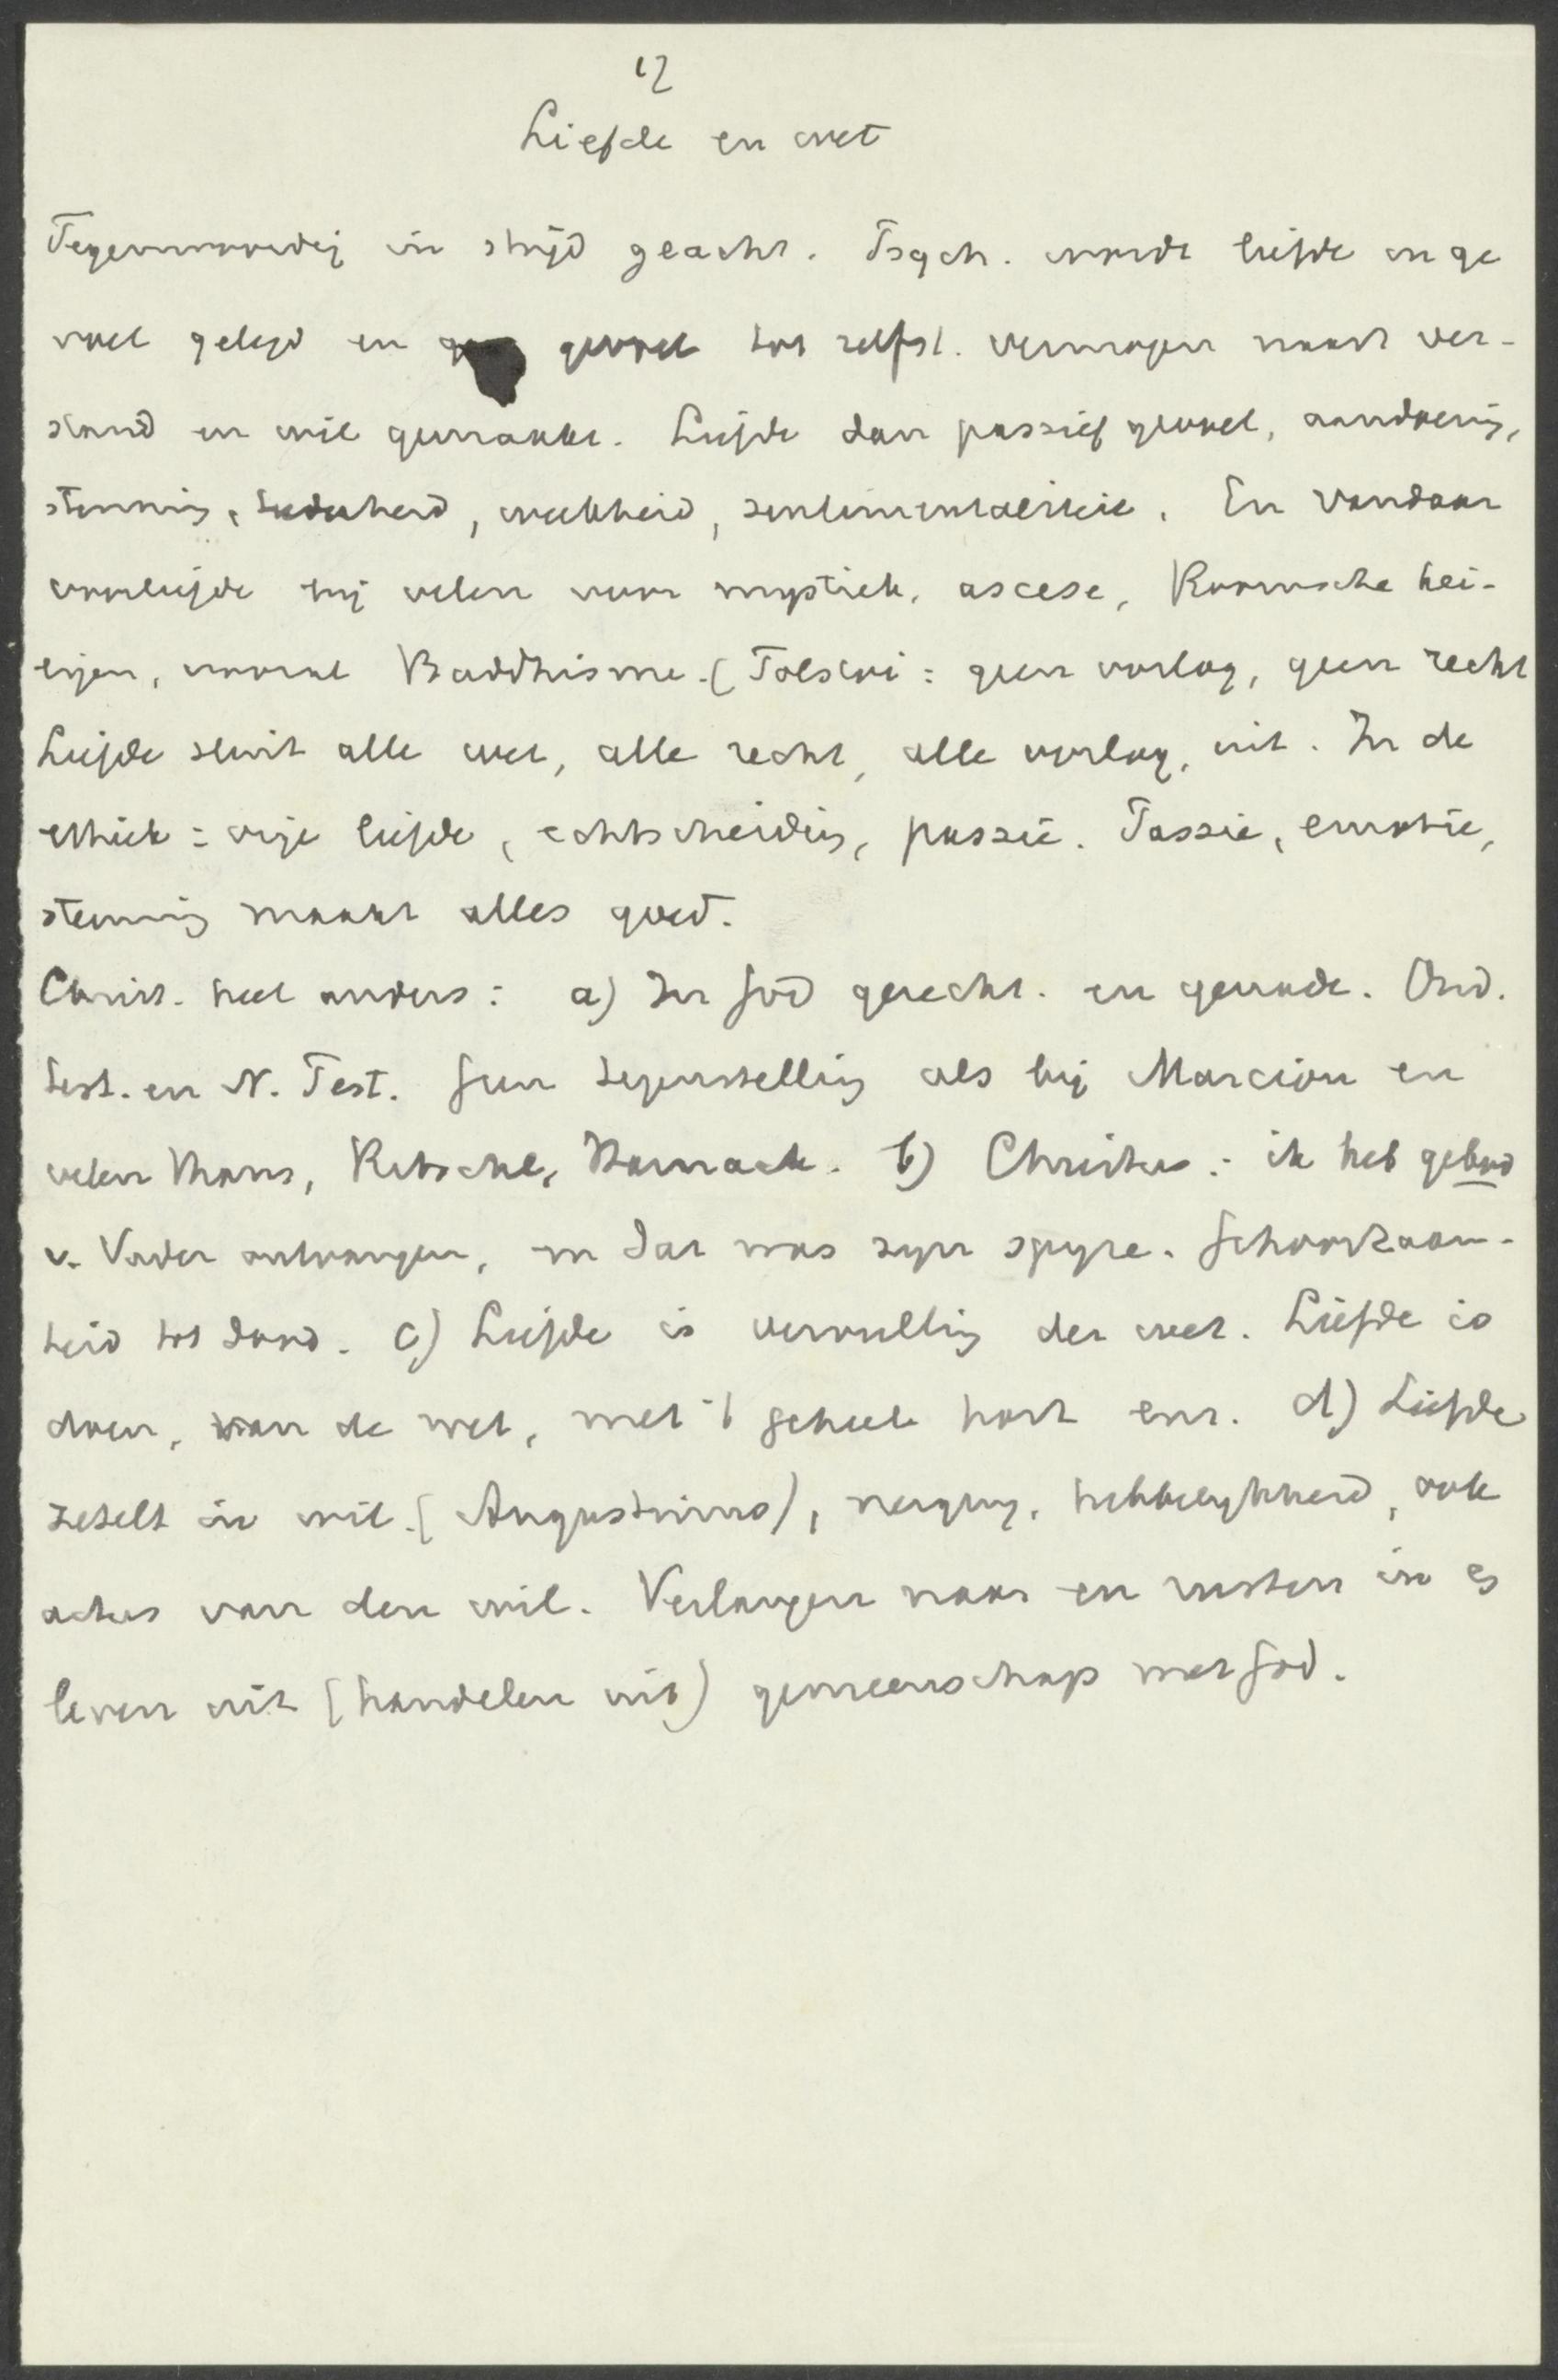 17
Liefde en wet
Tegenwoordig in strijd geacht. Psych. wordt liefde in ge
voel gelegd en gevoel tot zelfst. vermogen naast ver-
stand en wil gemaakt. Liefde dan passief gevoel, aandoening,
stemming, teederheid, weekheid, sentimentaliteit. En vandaar
voorliefde bij velen voor mystiek, ascese, Roomsche hei-
ligen, vooral Buddhisme. (Tolstoi: geen oorlog, geen recht
Liefde sluit alle wet, alle recht, alle oorlog, uit. In de
ethiek: vrije liefde, echtscheiding, passie. Passie, emotie,
stemming maakt alles goed.
Christ. heel anders: a) In God gerecht. en genade. Oud.
Test. en N. Test. Geen tegenstelling als bij Marcion en
velen thans, Ritschl, Harnack. b) Christus: ik heb gebod
v. Vader ontvangen, en dat was zijn spijze. Gehoorzaam-
heid tot dood. c) Liefde is vervulling der wet. Liefde is
doen, van de wet, met 't geheele hart enz. d) Liefde
zetelt in wil. (Augustinus), neiging, hebbelijkheid, ook
actus van den wil. Verlangen naar en rusten in es
leven uit (handelen uit) gemeenschap met God.